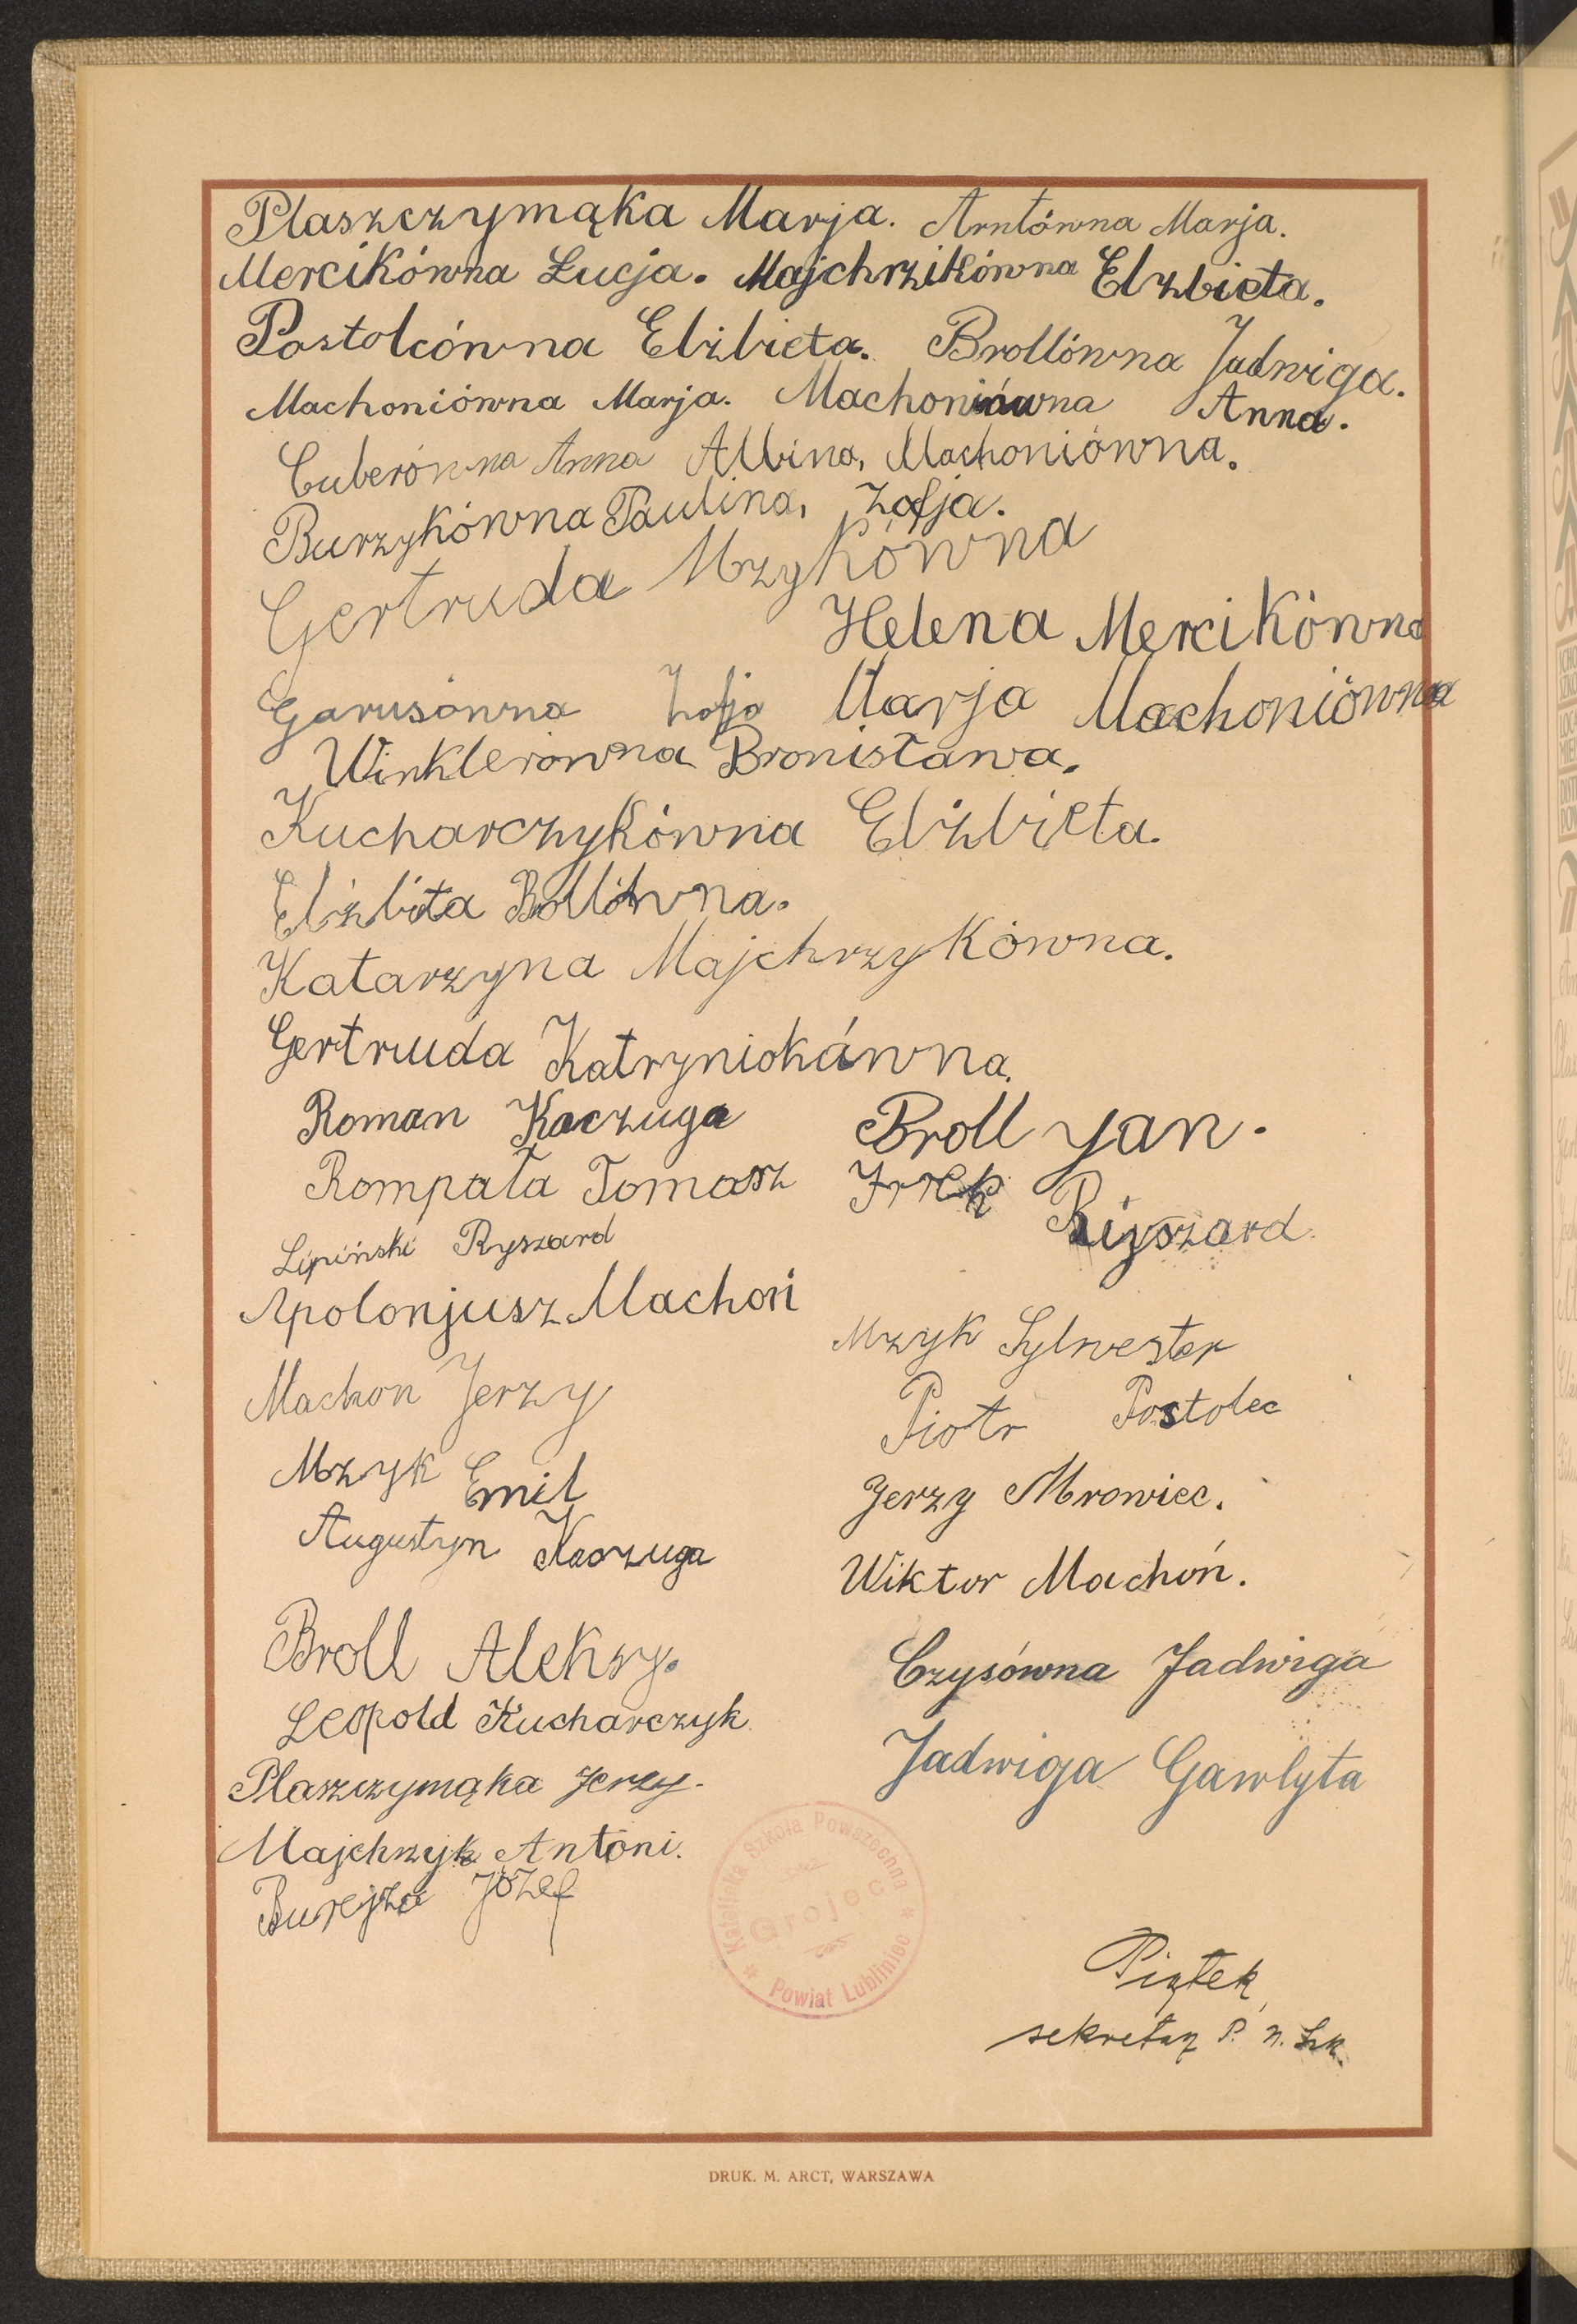 Plaszczymąka Marja. Arntówna Marja.
Mercikówna Łucja. Majchrzikówna Elzbieta.
Postolcówna Elżbieta. Brollówna Jadwiga.
Machoniówna Marja. Machoniówna Anna.
Cuberówna Anna Albina, Machoniówna.
Burzykówna Paulina, Zofja.
Gertruda Mzykówna
Helena Mercikówna
Garusówna Zofja Marja Machoniówna
Winklerówna Bronisława.
Kucharczykówna Elżbieta.
Elżbita Bollówna.
Katarzyna Majchrzykówna.
Gertruda Katryniokówna.
Roman Kaczuga
Broll Jan.
Rompała Tomasz
Ryszard
Lipiński Ryszard
Apolonjusz Machoń
Mzyk Sylwester
Machon Jerzy
Piotr Postolec
Mzyk Emil
Jerzy Mrowiec.
Augustyn Kaczuga
Wiktor Machoń.
Broll Aleksy.
Czysówna Jadwiga
Leopold Kucharczyk
Jadwiga Gawlyta
Plaszczymąka Jerzy.
Majchrzyk Antoni.
Józef
Katolicka Szkoła Powszechna
Grojec
* Powiat Lubliniec *
Piątek
sekretarz P. n. Szk.
DRUK. M. ARCT, WARSZAWA